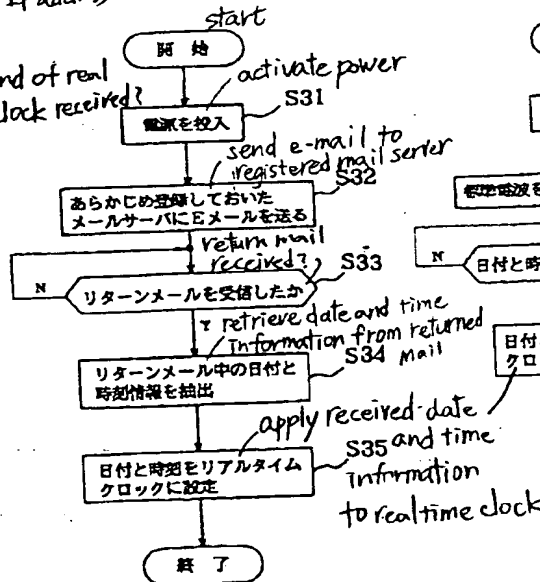 start
開始
end of real
clock received?
activate power
S31
電源を投入
send e-mail to
registered mail server
S32
あらかじめ登録しておいた
メールサーバにEメールを送る
return mail
received?
S33
N
リターンメールを受信したか
Y
retrieve date and time
information from returned
mail
S34
リターンメール中の日付と
時刻情報を抽出
apply received date
and time
information
to realtime clock
S35
日付と時刻をリアルタイム
クロックに設定
終了
N
日付と時
日付
クロ